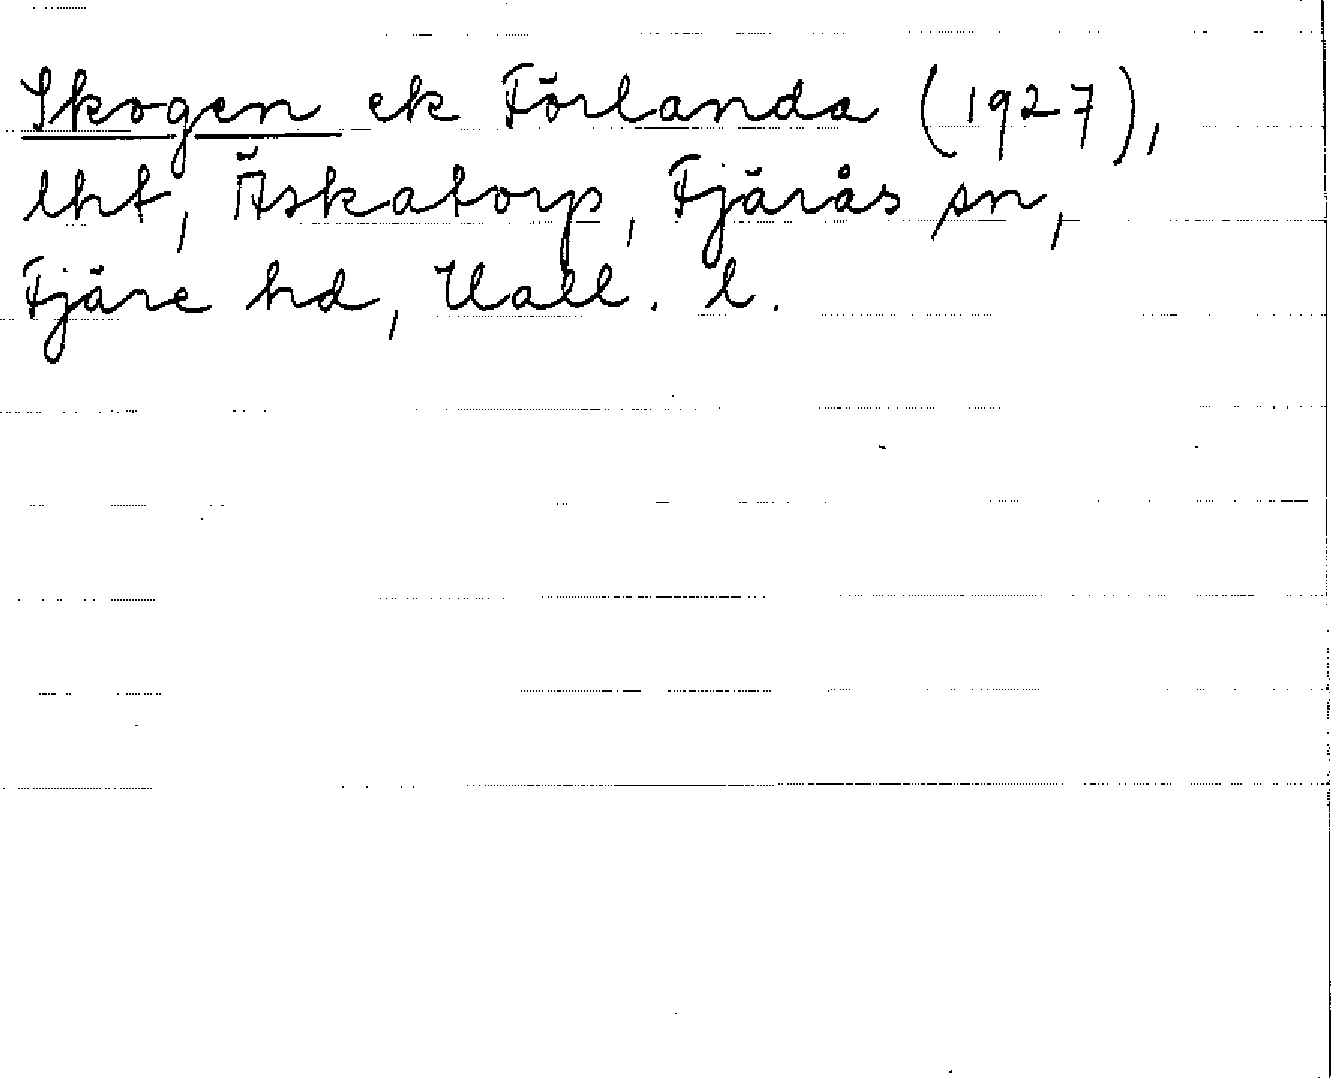 Skogen ek Förlanda (1927),
lht, Äskatorp, Fjärås sn,
Fjäre hd, Hall. l.